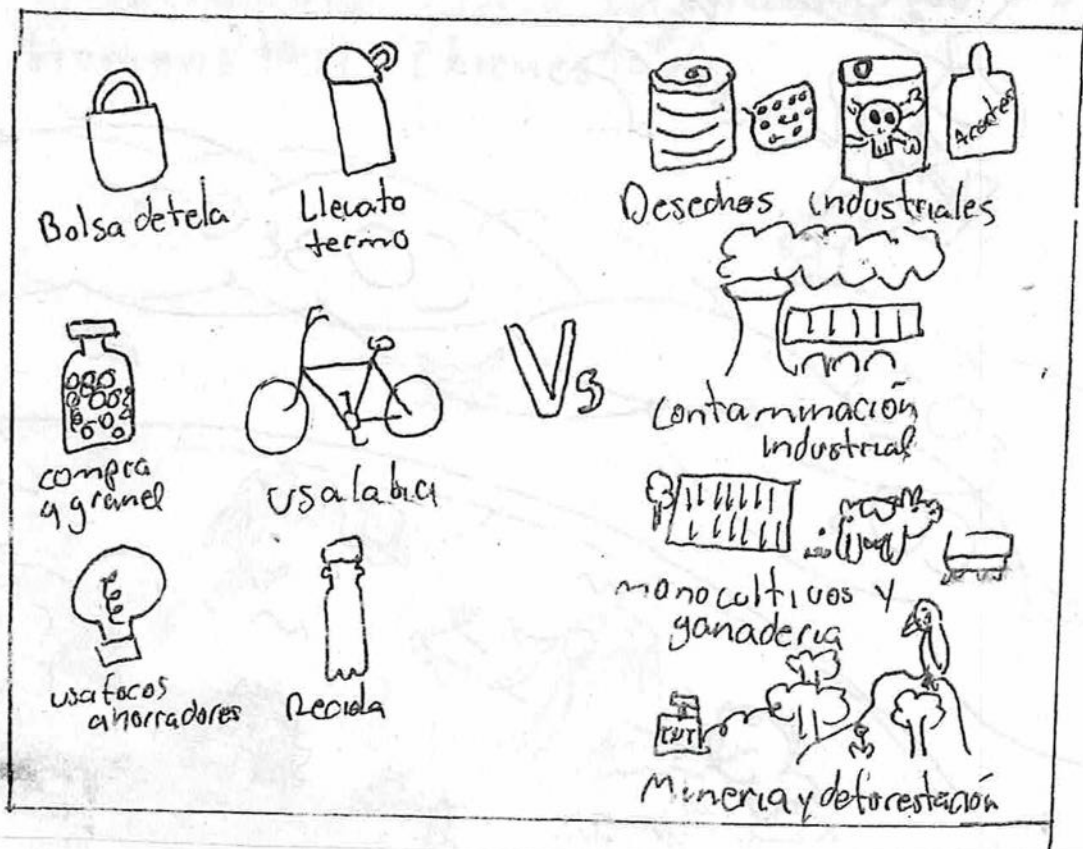 Bolsa de tela
Lleva to
termo
compra
a granel
usa la bici
usa focos
ahorradores
Recicla
Vs
Aceites
Desechos industriales
contaminación
industrial
monocultivos y
ganaderia
TNT
Mineria y deforestación